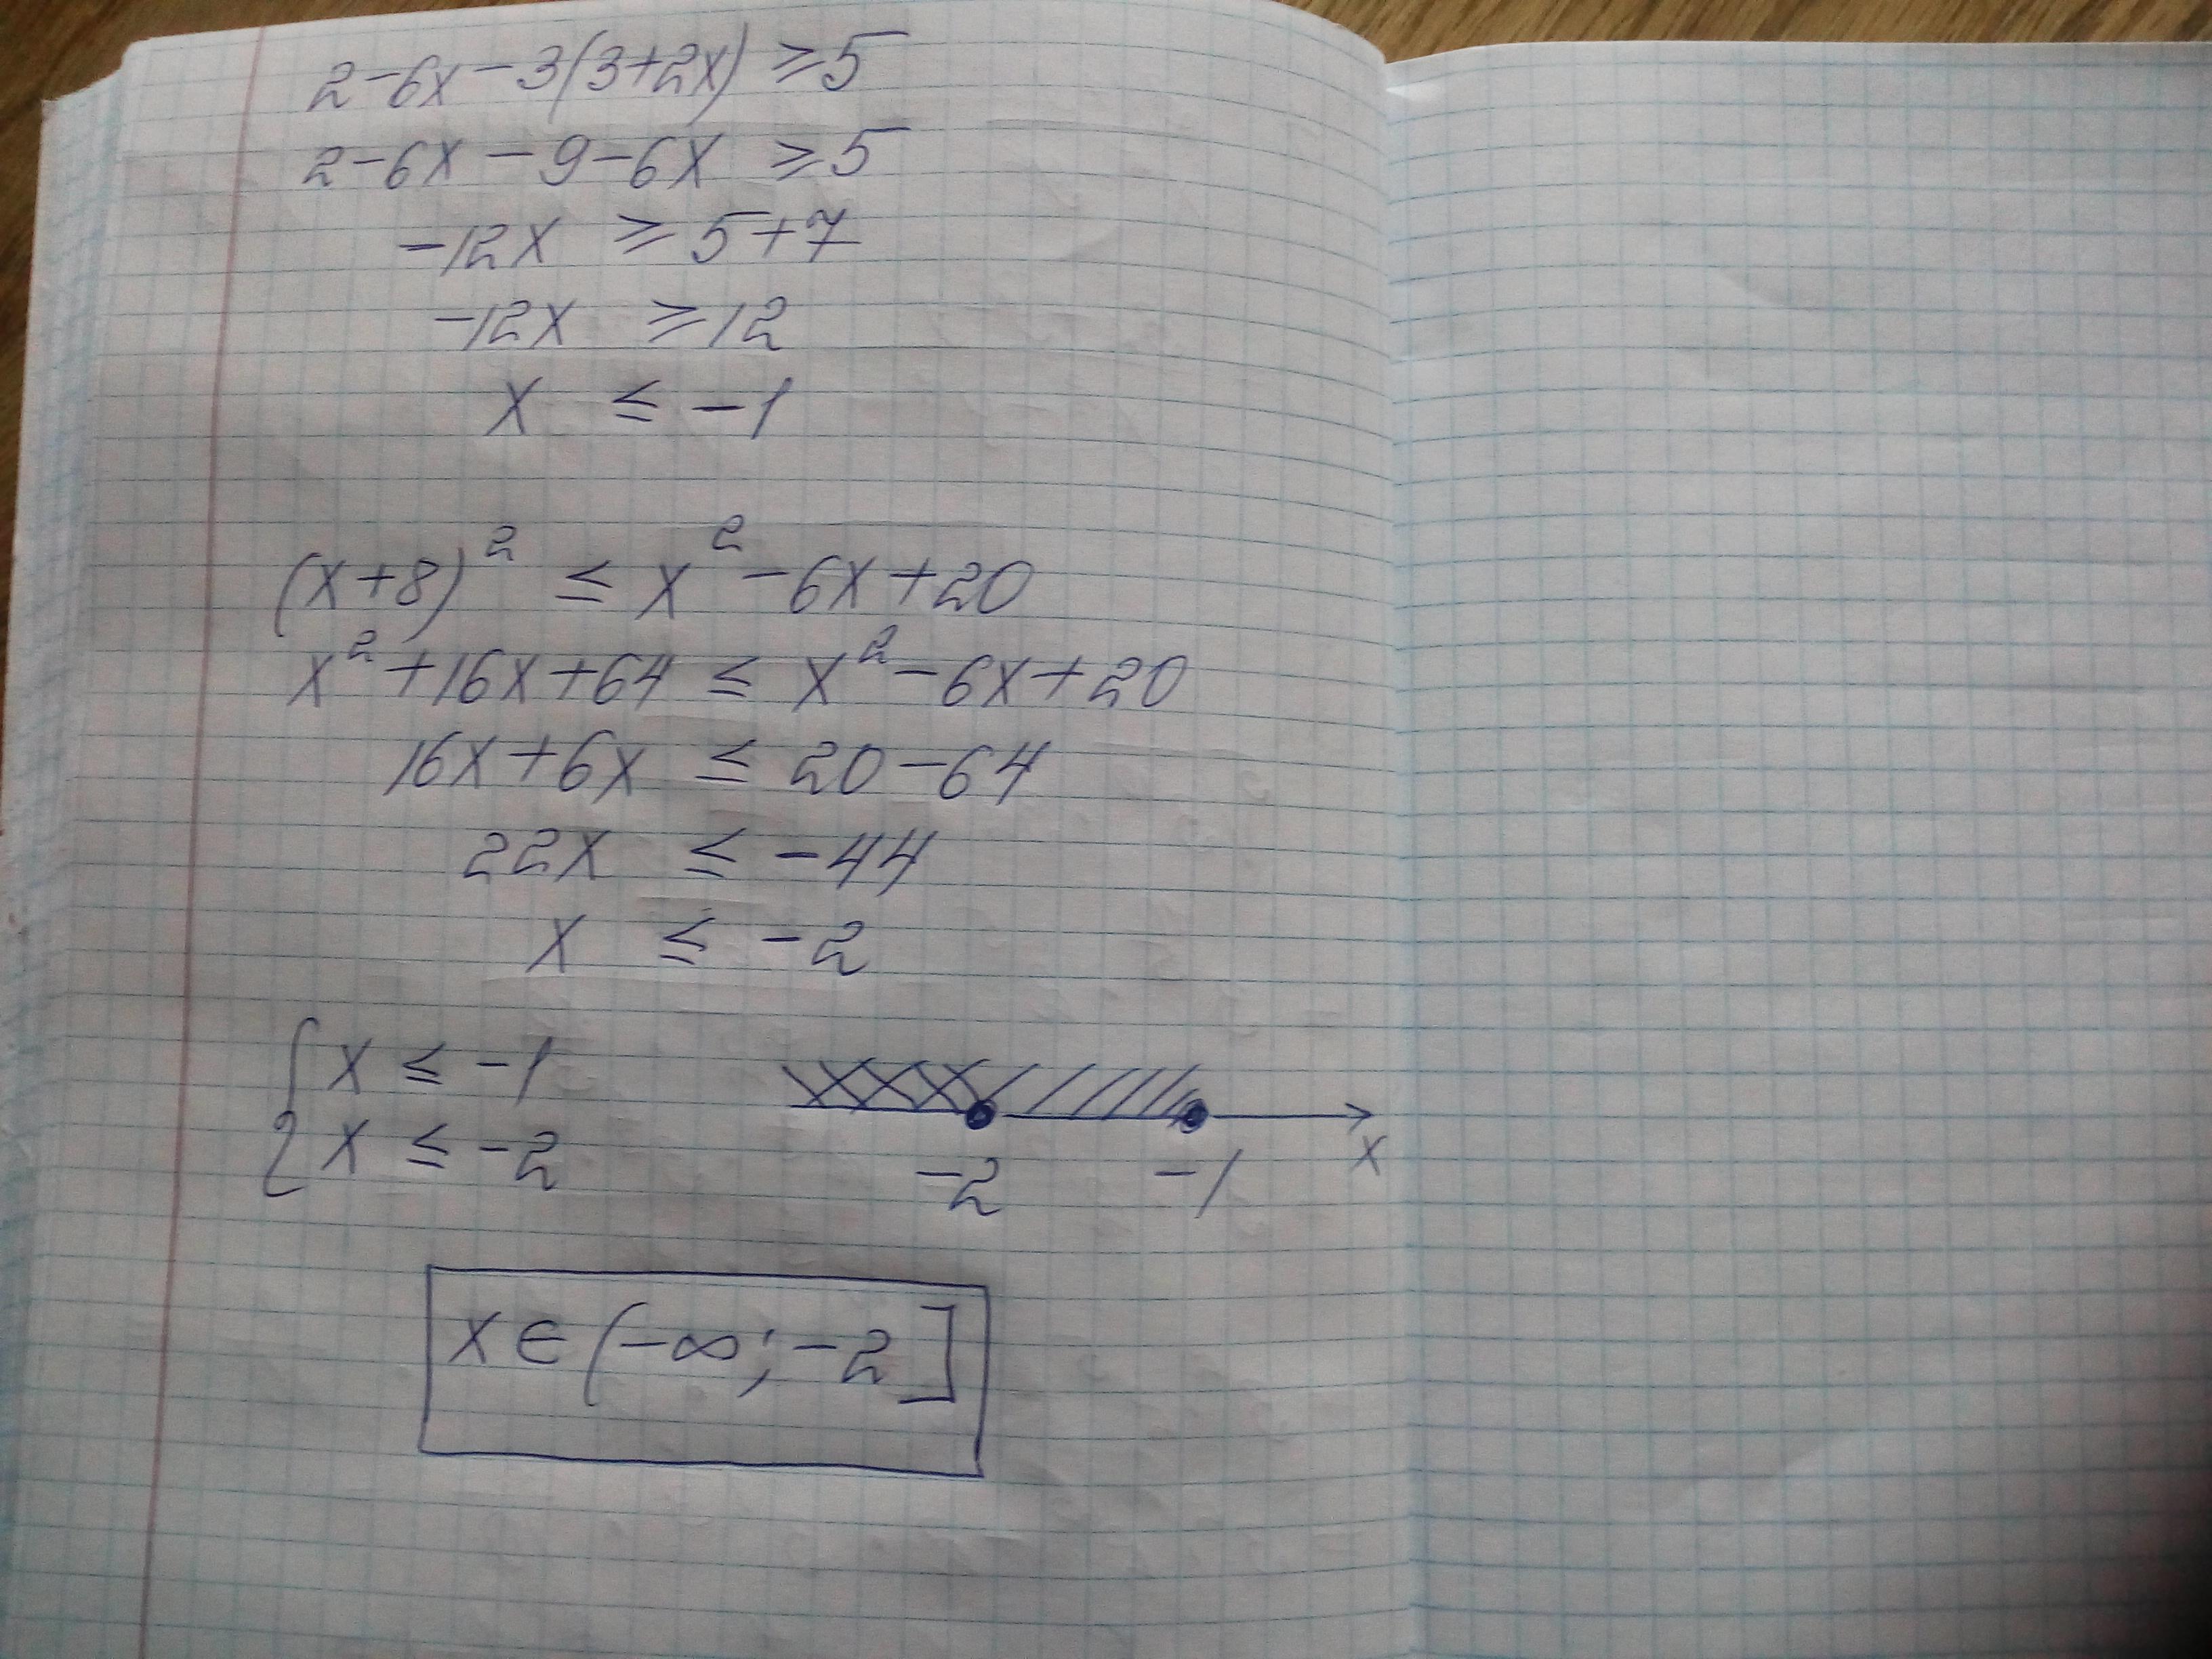 2-6x-3(3+2x) ⩾5
2-6x-9-6x ⩾5
-12x ⩾5+7
-12x ⩾12
x ≤ -1
(x+8)² ≤ x²-6x+20
x²+16x+64 ≤ x²-6x+20
16x+6x ≤ 20-64
22x ≤ -44
x ≤ -2
{x ≤ -1
x ≤ -2
-2 -1 x
x∈(-∞;-2]